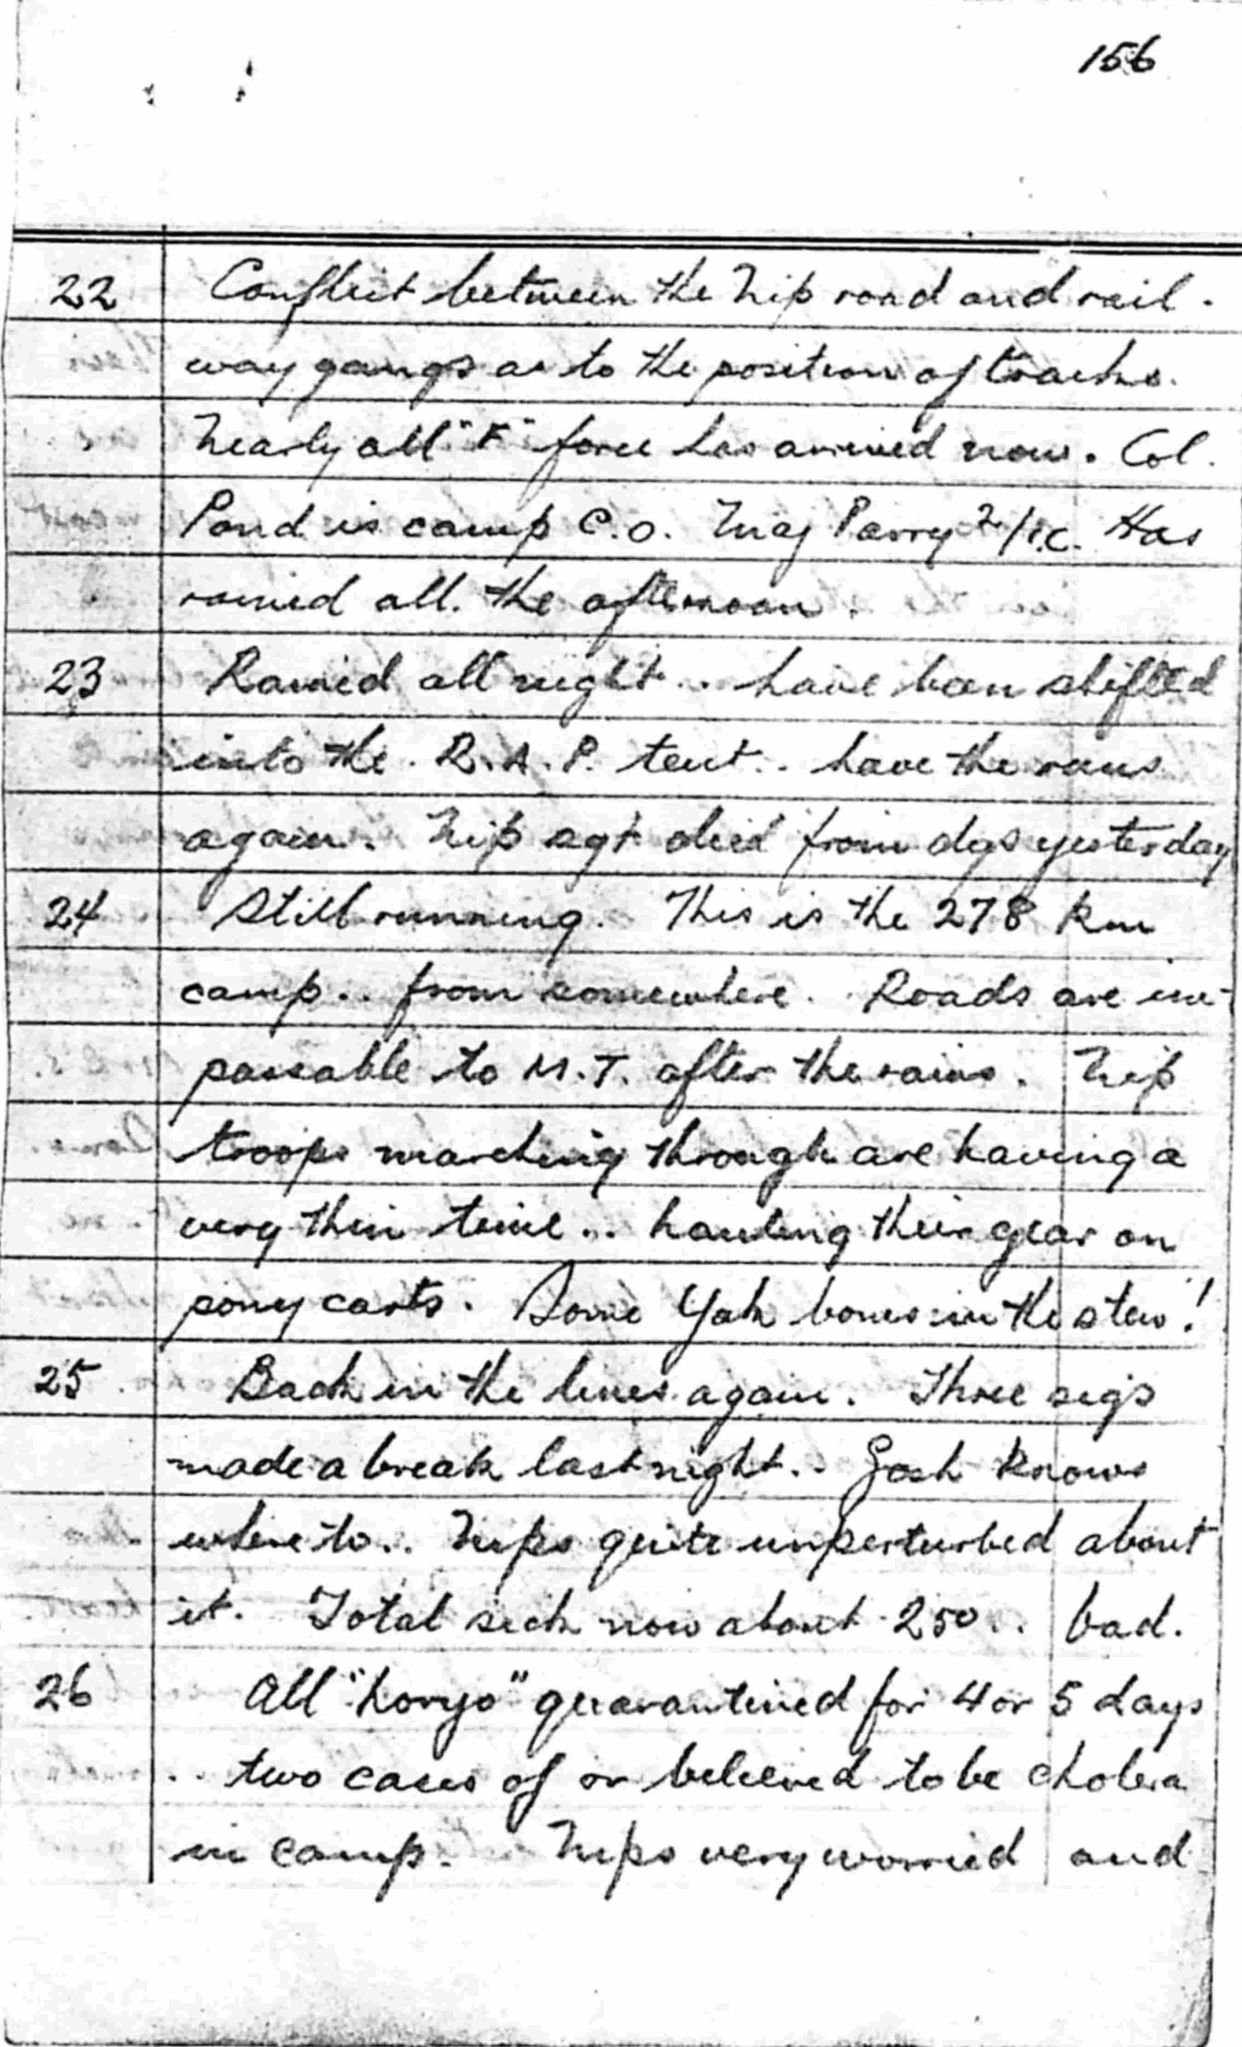 156
22 Conflict between the Nip road and rail-
way gangs as to the position of tracks.
Nearly all "F" force has arrived now. Col.
Pond is camp C.O. Maj Parry 2/I.C. Has
rained all. the afternoon.
23 Rained all night .. have been shifted
into the R.A.P. tent .. have the runs
again. Nip sgt died from dys yesterday
24 Still running. This is the 278 km
camp .. from somewhere. Roads are im-
passable to M.T. after the rains. Nip
troops marching through are having a
very thin time .. hauling their gear on
pony carts. Some Yak bones in the stew!
25 Back in the lines again. Three sigs
made a break last night .. Gosh knows
where to .. Nips quite unperturbed about
it. Total sick now about 250 .. bad.
26 All "horyo" quarantined for 4 or 5 days
.. two cases of or believed to be cholera
in camp. Nips very worried and